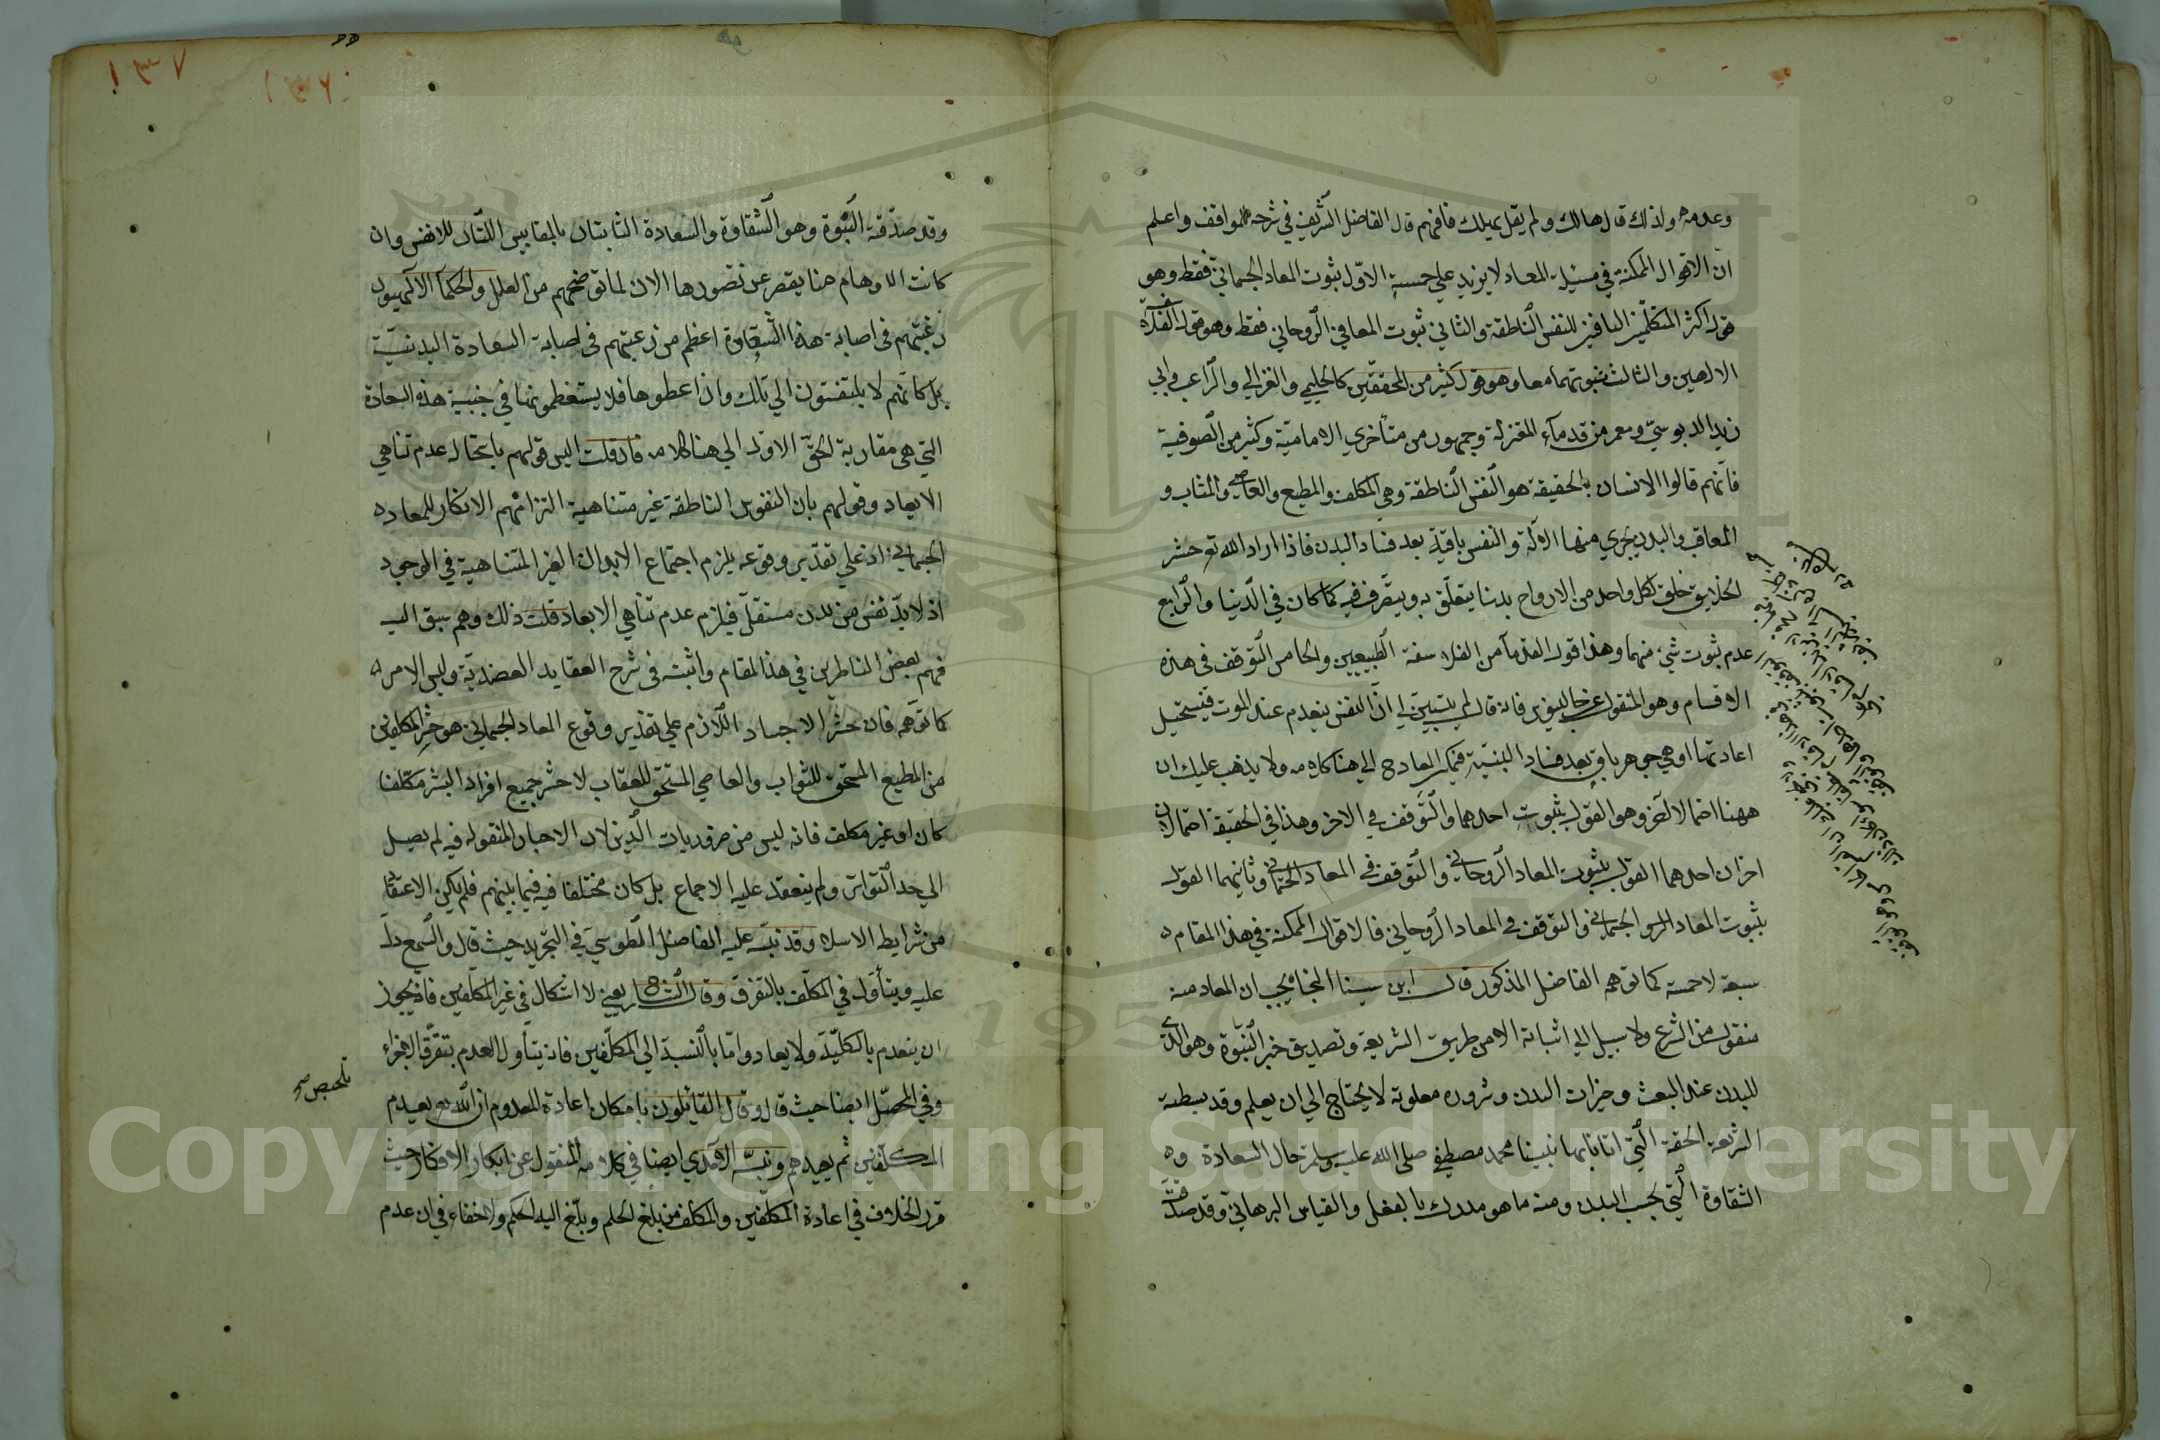 وعدمه ولذلك قال هالك ولم يقل يملك فافهم قال الفاضل الشريف في شرحه للمواقف واعلم
ان الاقوال الممكنة في مسئلة المعاد لا يزيد علي خمسة الاول ثبوت المعاد الجسماني فقط وهو
قول اكثر المتكلمين النافين للنفس الناطقة والثاني ثبوت المعاد الروحاني فقط وهو قول الفلاسفة
الالهين والثالث ثبوتهما معا وهو قول كثير من المحققين كالحليمي والغزالي والراغب وابي
زيد الدبوسي ومعمر من قدماء المعتزلة وجمهور من متأخري الامامية وكثير من الصوفية
فانهم قالوا الانسان بالحقيقة هو النفس الناطقة وهي المكلف والمطيع والعاصي والمثاب و
المعاقب والبدن يجري منها الالة والنفس باقية بعد فساد البدن فاذا اراد الله تع حشر
الخلايق خلق لكل واحد من الارواح بدنا يتعلق به ويتصرف فيه كما كان في الدنيا والرابع
عدم ثبوت شيء منهما وهذا قول القدمآ من الفلاسفة الطبيعيين والخامس التوقف في هذه
الاقسام وهو المنقول عن جالينوس فانه قال لم يتبين لي ان النفس ينعدم عند الموت فيستحيل
اعادتها او هي جوهر باق بعد فساد البنية فيمكن المعاد ح الي هنا كلامه ولا يذهب عليك ان
ههنا احتمالا آخر وهو القول بثبوت احدهما والتوقف في الاخر وهذا في الحقيقة احتمالان
اخران احدهما القول بثبوت المعاد الروحاني والتوقف في المعاد الجسماني وثانيهما القول
بثبوت المعاد الجسماني والتوقف في المعاد الروحاني فالاقوال الممكنة في هذا المقام
سبعة لا خمسة كما توهم الفاضل المذكور قال ابن سينا النجاة يجب ان المعاد منه
منقول من الشرع ولا سبيل الي اثباته الا من طريق الشريعة وتصديق خبر النبوة وهو الذي
للبدن عند البعث وخيرات البدن وشروره معلومة لا يحتاج الي ان يعلم وقد بسطت
الشريعة الحقة التي اتانا بها نبينا محمد مصطفي صلى الله عليه وسلم حال السعادة و
الشقاوة التي بحسب البدن ومنه ما هو مدرك بالعقل والقياس البرهاني وقد صدقته
١٣٧
١٣٦
وقد صدقته النبوة وهو الشقاوة والسعادة الثابتان بالمقاييس اللتان للانفس وان
كانت الاوهام هنا يقصر عن تصورها الان لما توضحهم من العلل والحكمآ الالهيون
رغبتهم في اصابة هذه الشقاوة اعظم من رغبتهم في اصابة السعادة البدنية
بل كانهم لا يلتفتون الي تلك وان اعطوها فلا يستعظمونها في جنبة هذه السعادة
التي هي مقاربة الحق الاول الي هنا كلامه فان قلت اليس قولهم باستحالة عدم تناهي
الابعاد وقولهم بان النفوس الناطقة غير متناهية التزامهم الانكار للمعاد
الجسماني اذ علي تقدير وقوعه يلزم اجتماع الابدان الغير المتناهية في الوجود
اذ لابد نفس من بدن مستقل فيلزم عدم تناهي الابعاد قلت ذلك وهم سبق اليه
فهم بعض الناظرين في هذا المقام واثبته في شرح العقايد العضدية وليس الامر
كما توهمه فان حشر الاجساد اللازم علي تقدير وقوع المعاد الجسماني هو حشر المكلفين
من المطيع المستحق للثواب والعاصي المستحق للعقاب لا حشر جميع افراد البشر مكلفا
كان او غير مكلف فانه ليس من ضروريات الدين لان الاخبار المنقولة فيه لم يصل
الي حد التواتر ولم ينعقد عليه الاجماع بل كان مختلفا فيه فيما بينهم فلم يكن الاعتقاد
من شرايط الاسلام وقد نبه عليه الفاضل الطوسي في التجريد حيث قال والسمع دل
عليه ويتأول في المكلف بالتفرق وقال الشارح يعني لا اشكال في غير المكلفين فانه يجوز
ان ينعدم بالكلية ولا يعاد واما بالنسبة الي المكلفين فانه يتأول العدم بتفرق الاجزاء
وفي المحصل ايضا حيث قال وقال القائلون بامكان اعادة المعدوم ان الله تع يعدم
تلخيص صح
المكلفين ثم يعيدهم ونبه الآمدي ايضا في كلامه المنقول عن ابكار الافكار حيث
قرر الخلاف في اعادة المكلفين والمكلف من بلغ الحلم وبلغ اليه الحكم ولا خفاء في ان عدم